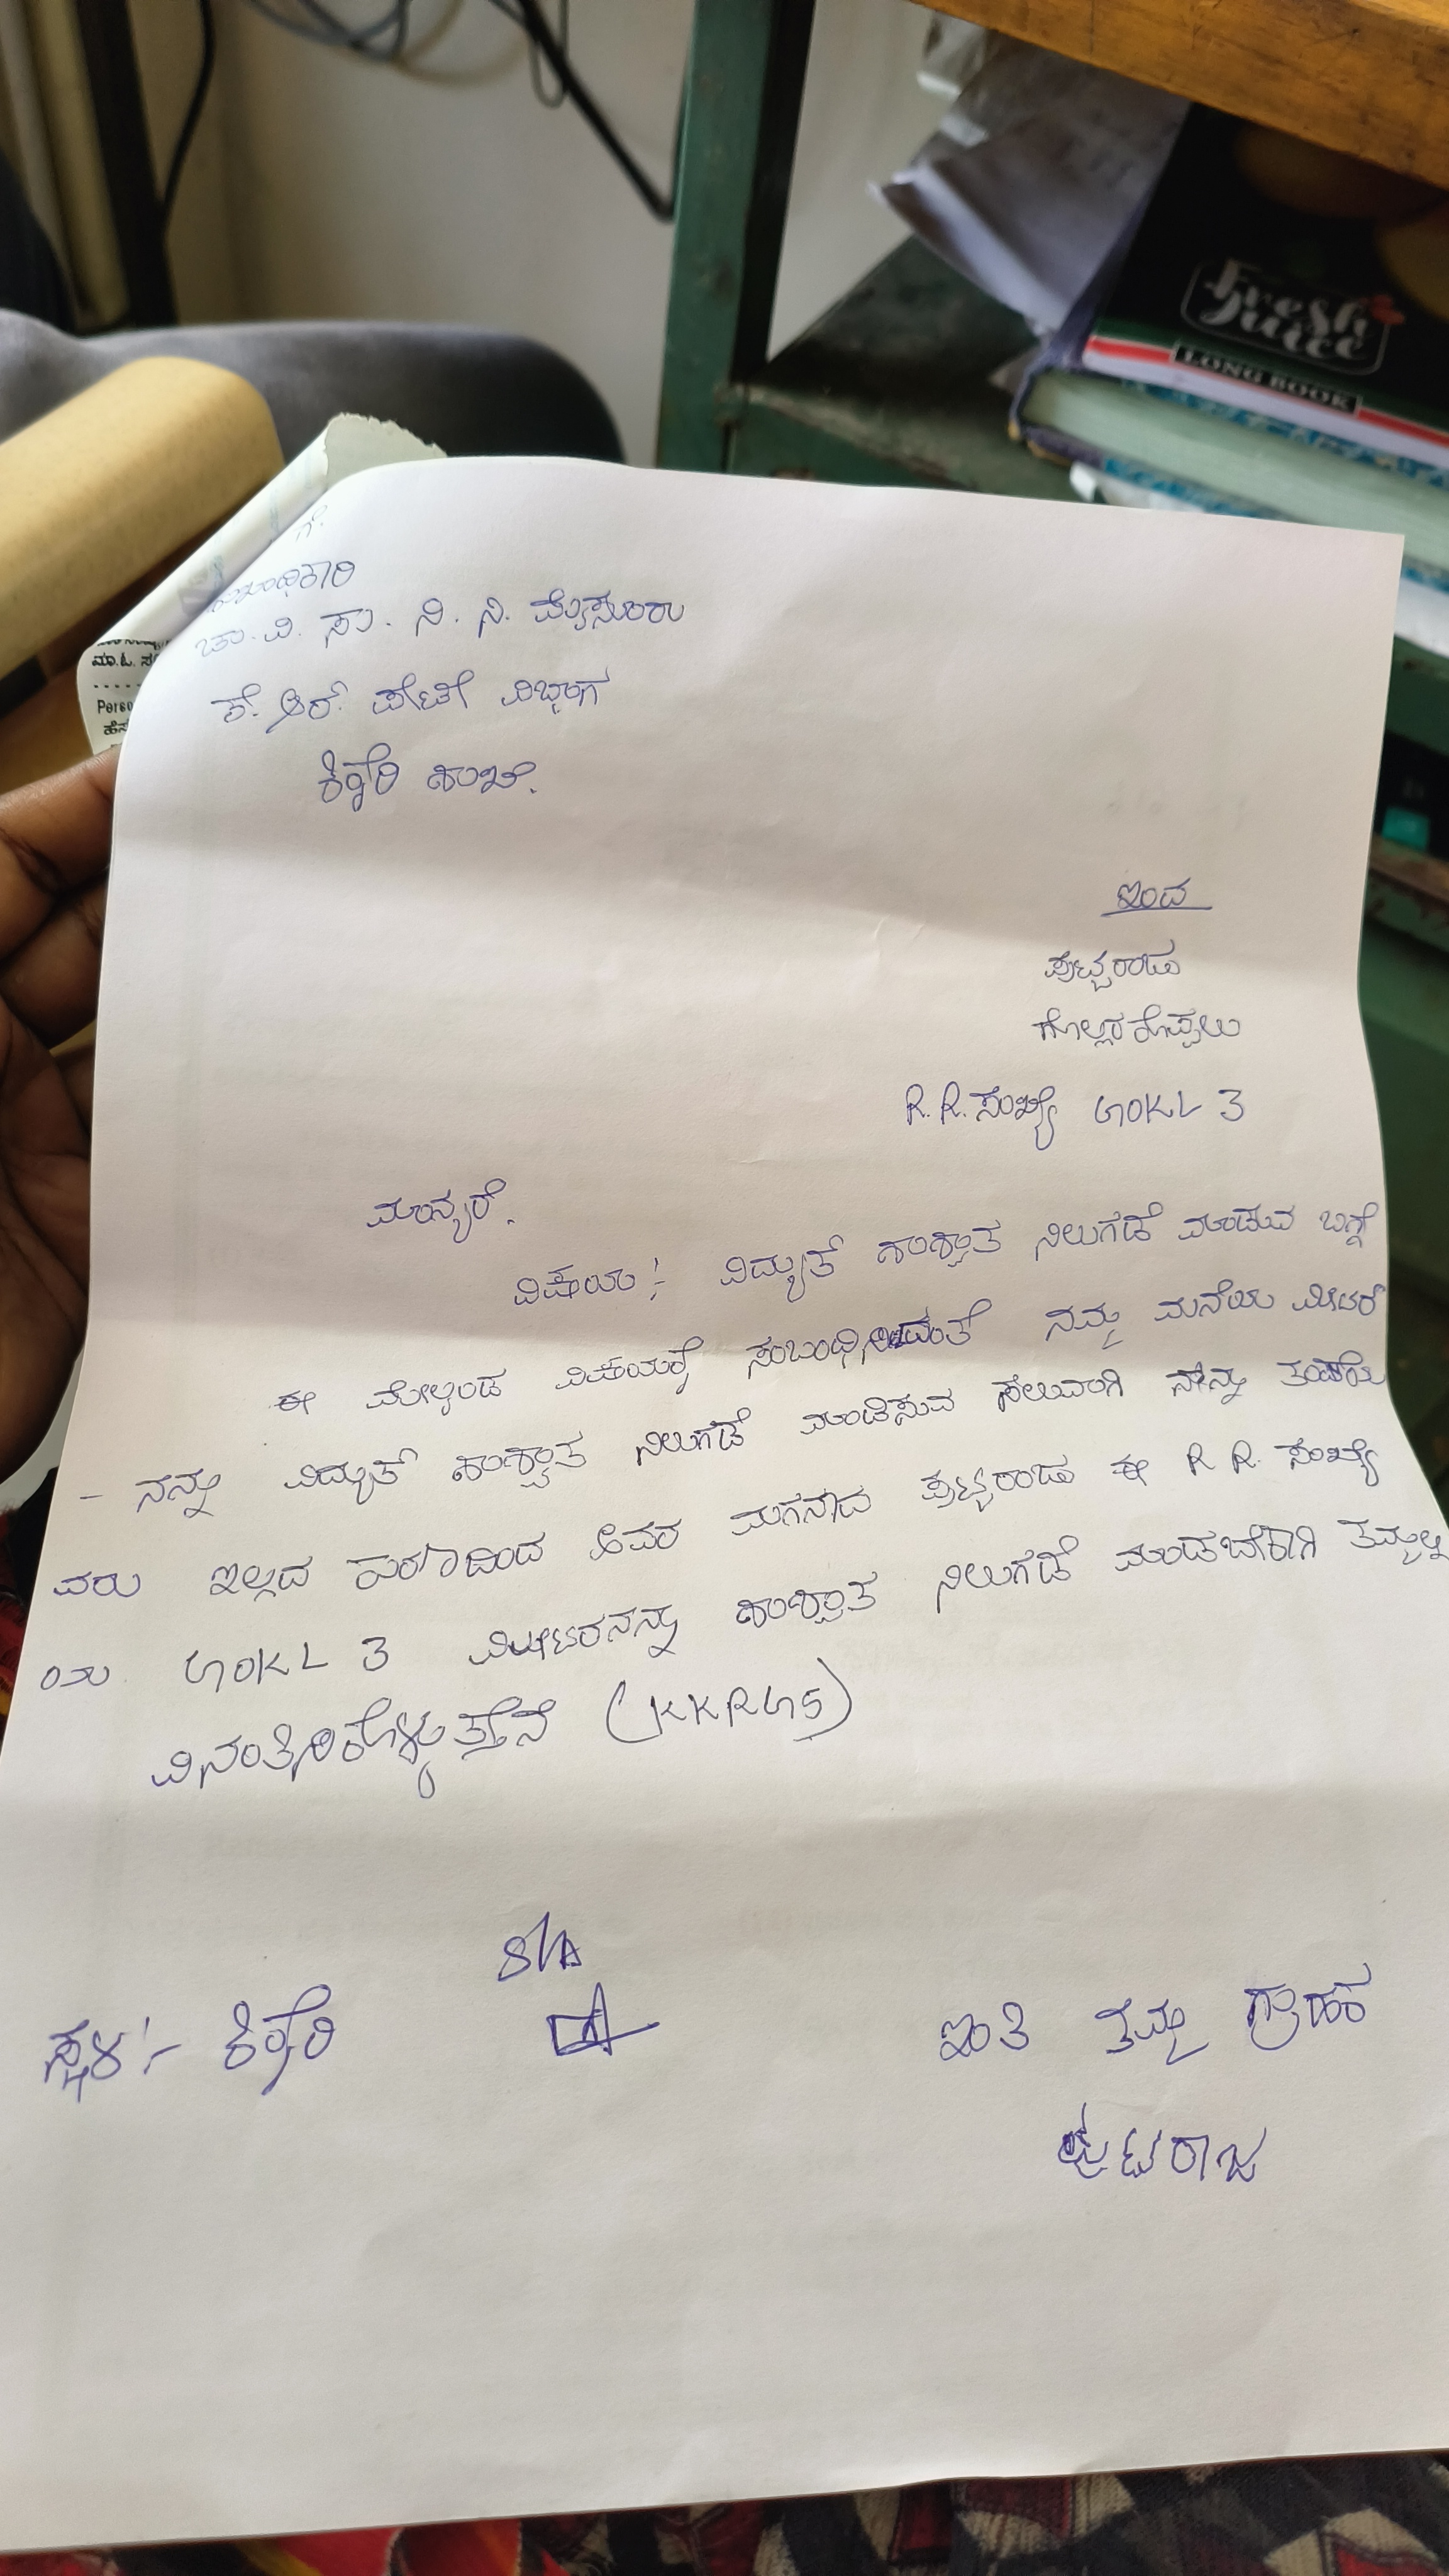 ಗೆ.
ಚಾ. ವಿ. ಸ. ನಿ. ನಿ. ಮೈಸೂರು
ಕೆ. ಆರ್. ಪೇಟೆ ವಿಭಾಗ
ಕಿಕ್ಕೇರಿ ಶಾಖೆ.
ಇಂದ
ಪುಟ್ಟರಾಜು
ಗೊಲ್ಲರಕೊಪ್ಪಲು
R. R. ಸಂಖ್ಯೆ GOKL 3
ಮಾನ್ಯರೆ.
ವಿಷಯ :- ವಿದ್ಯುತ್ ಶಾಶ್ವತ ನಿಲುಗಡೆ ಮಾಡುವ ಬಗ್ಗೆ
ಈ ಮೇಲ್ಕಂಡ ವಿಷಯಕ್ಕೆ ಸಂಬಂಧಿಸಿದಂತೆ ನಮ್ಮ ಮನೆಯ ಮೀಟರ್
- ನನ್ನು ವಿದ್ಯುತ್ ಶಾಶ್ವತ ನಿಲುಗಡೆ ಮಾಡಿಸುವ ಸಲುವಾಗಿ ನನ್ನ ತಂದೆಯ
ವರು ಇಲ್ಲದ ಕಾರಣದಿಂದ ಅವರ ಮಗನಾದ ಪುಟ್ಟರಾಜು ಈ R R. ಸಂಖ್ಯೆ
ಯ GOKL 3 ಮೀಟರನನ್ನು ಶಾಶ್ವತ ನಿಲುಗಡೆ ಮಾಡಬೇಕಾಗಿ ತಮ್ಮಲ್ಲಿ
ವಿನಂತಿಸಿಕೊಳ್ಳುತ್ತೇನೆ (KKRG5)
ಸ್ಥಳ :- ಕಿಕ್ಕೇರಿ
ಇಂತಿ ತಮ್ಮ ಗ್ರಾಹಕ
ಪುಟರಾಜ
Fresh
Juice
LONG BOOK